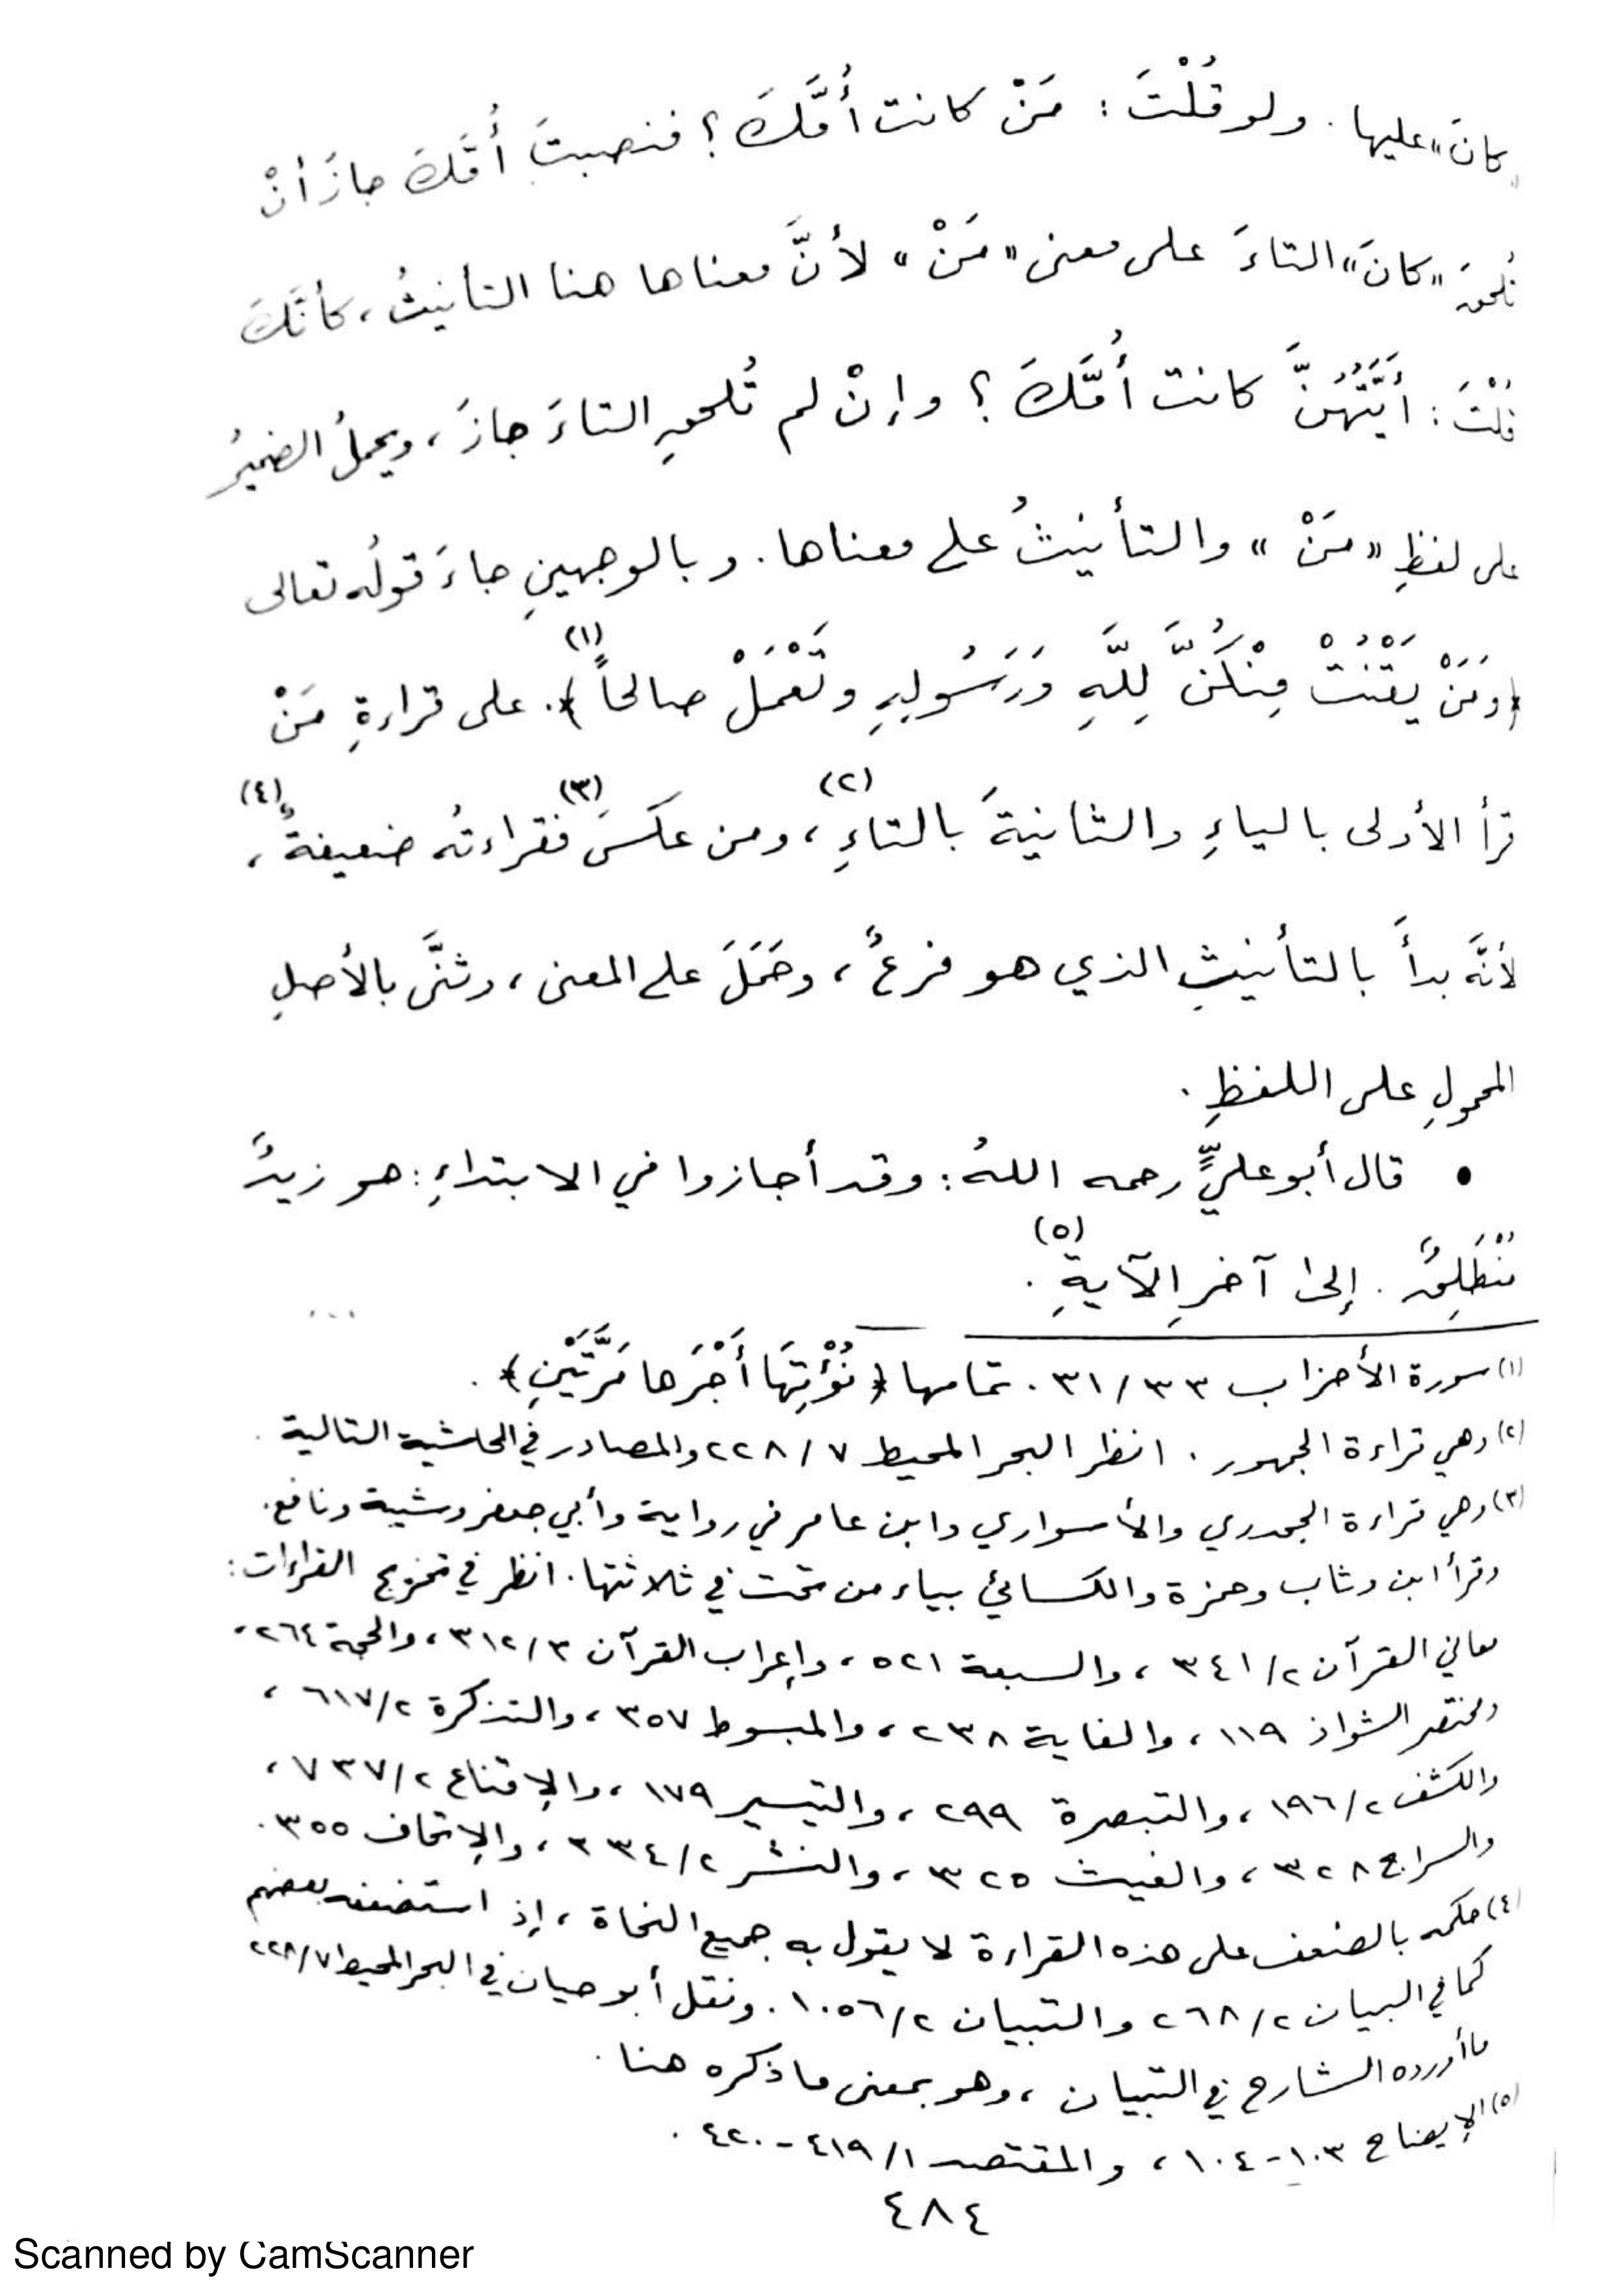 «كانَ» عليها. ولو قُلْتَ: مَنْ كانت أُمَّكَ؟ فنصبتَ أُمَّكَ جازَ أنْ
تُلحقَ «كانَ» التاءَ على معنى «مَنْ» لأنَّ معناها هنا التأنيثُ، كأنَّكَ
قُلْتَ: أَيَّتُهُنَّ كانت أُمَّكَ؟ وإنْ لم تُلحقِ التاءَ جازَ، ويحملُ الضميرُ
على لفظِ «مَنْ» والتأنيثُ على معناها. وبالوجهينِ جاءَ قولُه تعالى
﴿وَمَنْ يَقْنُتْ مِنْكُنَّ لِلَّهِ وَرَسُولِهِ وتَعْمَلْ صالحاً﴾(١). على قراءةِ مَنْ
قرأ الأولى بالياءِ والثانيةَ بالتاءِ(٢)، ومن عكسَ(٣) فقراءتُه ضعيفةٌ(٤)،
لأنَّه بدأَ بالتأنيثِ الذي هو فرعٌ، وحَمَلَ على المعنى، وثنَّى بالأصلِ
المحمولِ على اللفظِ.
• قال أبو عليٍّ رحمه اللهُ: وقد أجازوا في الابتداءِ: هو زيدٌ
مُنْطَلِقٌ. إلى آخرِ الآيةِ(٥).
...
(١) سورة الأحزاب ٣١/٣٣. تمامها ﴿نُؤْتِهَا أَجْرَها مَرَّتَيْنِ﴾.
(٢) وهي قراءة الجمهور. انظر البحر المحيط ٢٢٨/٧ والمصادر في الحاشية التالية.
(٣) وهي قراءة الجحدري والأسواري وابن عامر في رواية وأبي جعفر وشيبة ونافع.
وقرأ ابن وثاب وحمزة والكسائي بياء من تحت في ثلاثتها. انظر في تخريج القراءات:
معاني القرآن ٣٤١/٢، والسبعة ٥٢١، وإعراب القرآن ٣١٢/٣، والحجة ٢٦٤،
ومختصر الشواذ ١١٩، والغاية ٢٣٨، والمبسوط ٣٥٧، والتذكرة ٦١٧/٢،
والكشف ١٩٦/٢، والتبصرة ٢٩٩، والتيسير ١٧٩، والإقناع ٧٣٧/٢،
والسراج ٣٢٨، والغيث ٣٢٥، والنشر ٣٣٤/٢، والإتحاف ٣٥٥.
(٤) حكمه بالضعف على هذه القراءة لا يقول به جميع النحاة، إذ استضعفه بعضهم
كما في البيان ٢٦٨/٢ والتبيان ١٠٥٦/٢. ونقل أبو حيان في البحر المحيط ٢٢٨/٧
ما أورده الشارح في التبيان، وهو بمعنى ما ذكره هنا.
(٥) الإيضاح ١٠٣-١٠٤، والمقتصد ٤١٩/١-٤٢٠.
٤٨٤
Scanned by CamScanner